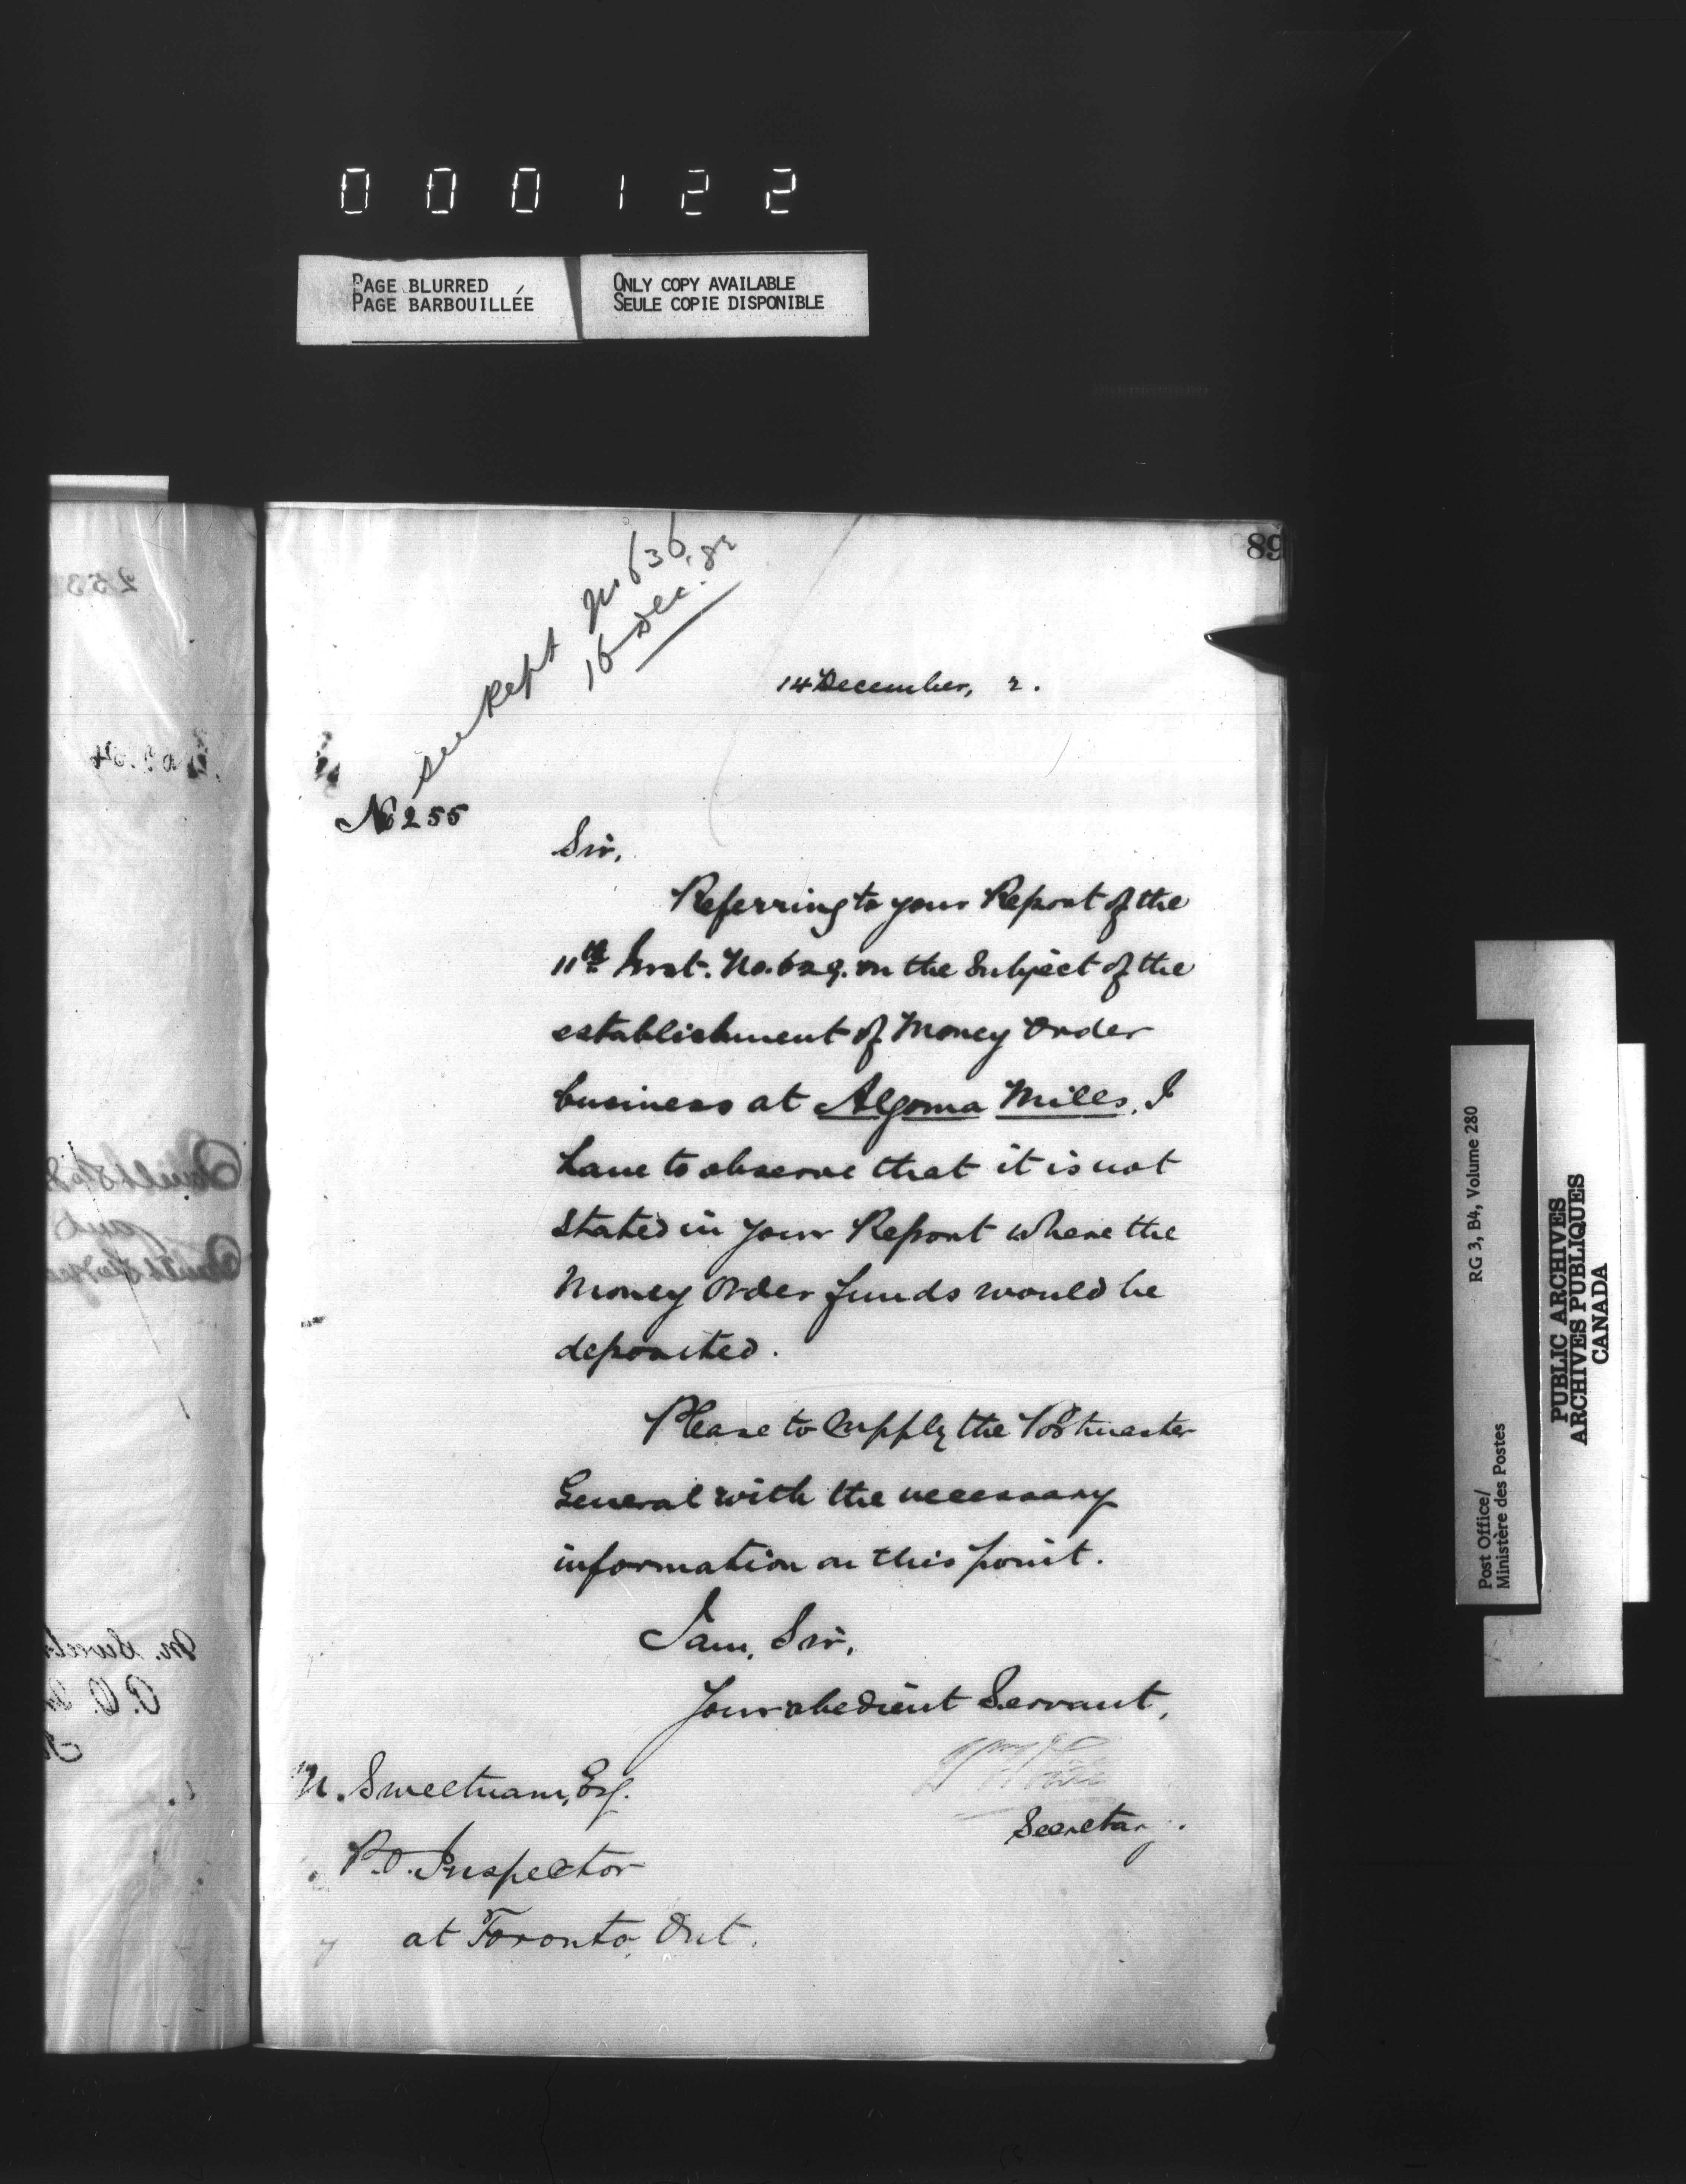 000122
PAGE BLURRED
PAGE BARBOUILLÉE
ONLY COPY AVAILABLE
SEULE COPIE DISPONIBLE
89
see Rept No 636
16 Dec. 82
14 December, 2.
No 255
Sir,
Referring to your Report of the
11th Inst. No. 629. on the Subject of the
establishment of Money Order
business at Algoma Mills, I
have to observe that it is not
stated in your Report where the
Money Order funds would be
deposited.
Please to supply the Postmaster
General with the necessary
information on this point.
I am, Sir,
Your obedient Servant,
Secretary.
M. Sweetnam, Esq.
P.O. Inspector
at Toronto, Ont.
Post Office/
Ministère des Postes
RG 3, B4, Volume 280
PUBLIC ARCHIVES
ARCHIVES PUBLIQUES
CANADA